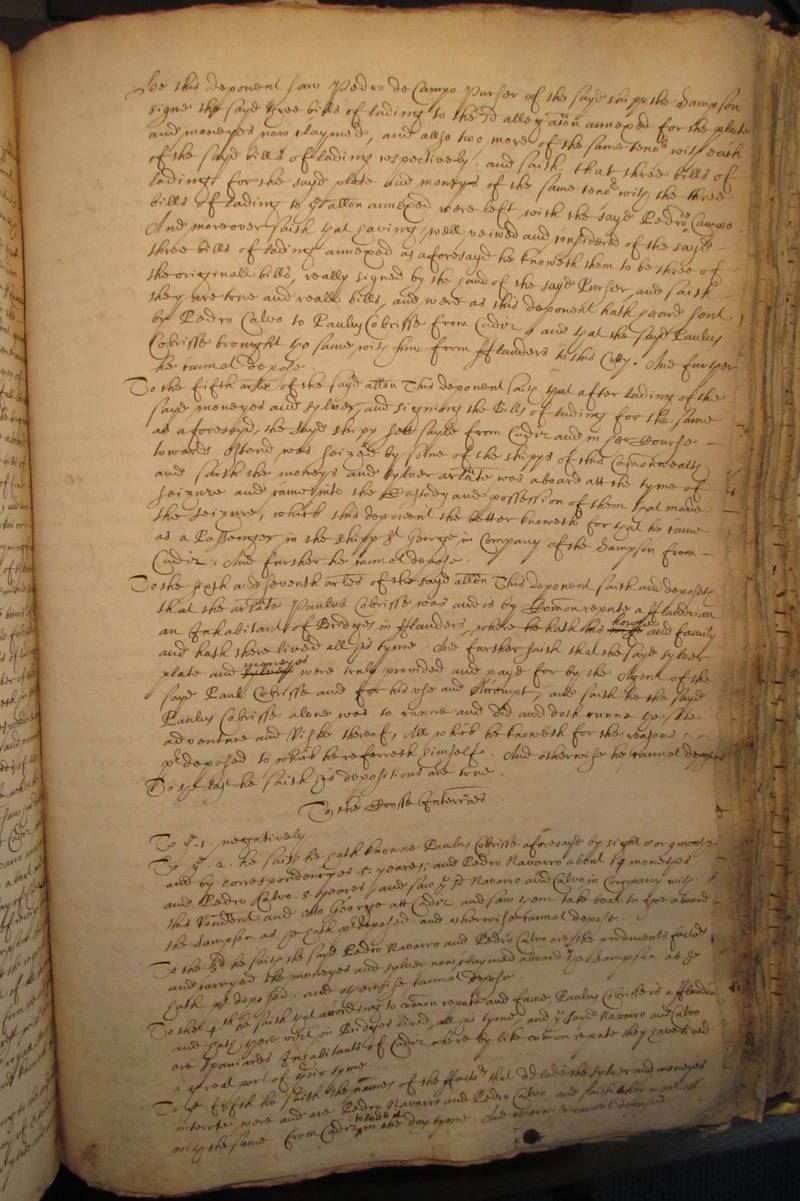 hee this deponent saw Pedro de Campo Purser of the sayd shipp the Sampson
signe the sayd three bills of lading to the sd allegation annexed for the plate
and moneyes now claymed, and allso two more of the same tenor with each
of the sayd bills of lading respectively. and saith, that three bills of
lading for the sayd plate and moneys of the same tenor with the three
bills of lading to ye allon annexed were left with the sayd Pedro Campo.
And moreover saith that having well veiwed and considered of the sayd
three bills of lading annexed as aforesayd he knoweth them to be three of
the originall bills, really signed by the hand of the sayd Purser, and saith
they are true and reall bills, and were as this deponent hath heard sent
by Pedro Calvo to Paulus Cobrisse from Cadiz, and that the sayd Paulus
Cobrisse brought the same with him from fflanders to this City. And further
he cannot depose
To the fifth arle of the sayd allon This deponent saith that after lading of the
sayd moneyes and sylver, and signing the Bills of lading for the same
as aforesayd, the sayd shipp sett sayle from Cadiz and in her Course
towards Ostend was seized by some of the shipps of this Commonwealth
and saith the moneys and sylver arlate was aboard att the tyme of
seizure and came into the Custody and possession of them that made
the seizure, which this deponent the better knoweth for that he came
as a Passenger in the shipp St George in Company of the Sampson from
Cadiz. And further he cannot depose.
To the sixth and seventh arles of the sayd allon This deponent saith and deposeth
that the arlate Paulus Cobrisse was and is by Common repute a fflandrian
an Inhabitant of Bridges in fflanders, where he hath his house and family
and hath there lived all his tyme. And further saith that the sayd sylver
plate and moneyes sylver were truly provided and payd for by the Agent of the
sayd Paul Cobrisse and for his use and Accompt, and saith he the sayd
Paulus Cobrisse alone was to runne and did and doth runne the
adventure and Riske thereof, All which he knoweth for the reasons
pre deposed to which he referreth himselfe. And otherwise he cannot depose
To the last he saith his depositions are true.
To the Crosse Interries
To ye .1. negatively
To ye .2. he saith he hath knowne Paulus Cobrisse aforesayd by sight 8 or 9 moneths
and by correspondencyes 5 yeares; and Pedro Navarro about 14 moneths
and Pedro Calvo 8 yeares, and saw ye sd Navarro and Calvo in Company with
this Rondent and George att Cadiz, and saw them take boat to goe aboard
the Sampson as he hath pre deposed. and otherwise cannot depose.
To the 3d he saith the sayd Pedro Navarro and Pedro Calvo are the factors
and carryed the moneyes and sylver now claymed aboard the Sampson as he
hath pre deposed. and otherwise cannot depose.
To the 4th he saith that according to common repute and fame, Paulus Cobrisse is a fflandrian
and hath there in Bridges lived all his tyme, and ye sayd Navarro and Calvo
are Spaniards Inhabitants of Cadiz, where by like common repute they have lived
a great part of their tyme
To ye fifth he saith the names of the ffactors that did lade the sylver and moneyes
interrte were and are Pedro Navarro and Pedro Calvo, and saith
with the same from Cadiz in the day tyme. And otherwise cannot depose